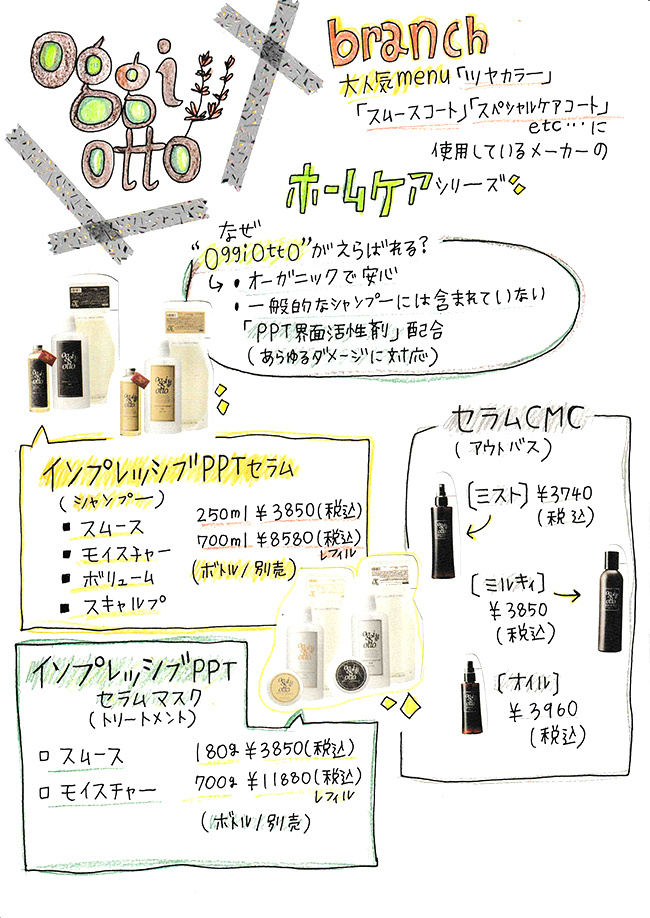 oggi
otto
branch
大人気menu「ツヤカラー」
「スムースコート」「スペシャルケアコート」
etc…に
使用しているメーカーの
ホームケアシリーズ
なぜ
"oggiotto"がえらばれる?
・オーガニックで安心
・一般的なシャンプーには含まれていない
「PPT界面活性剤」配合
(あらゆるダメージに対応)
インプレッシブPPTセラム
(シャンプー)
■ スムース
■ モイスチャー
■ ボリューム
■ スキャルプ
250ml ¥3850(税込)
700ml ¥8580(税込)
レフィル
(ボトル/別売)
セラムCMC
(アウトバス)
[ミスト] ¥3740
(税込)
[ミルキィ]
¥3850
(税込)
[オイル]
¥3960
(税込)
インプレッシブPPT
セラムマスク
(トリートメント)
□ スムース
□ モイスチャー
180g ¥3850(税込)
700g ¥11880(税込)
レフィル
(ボトル/別売)